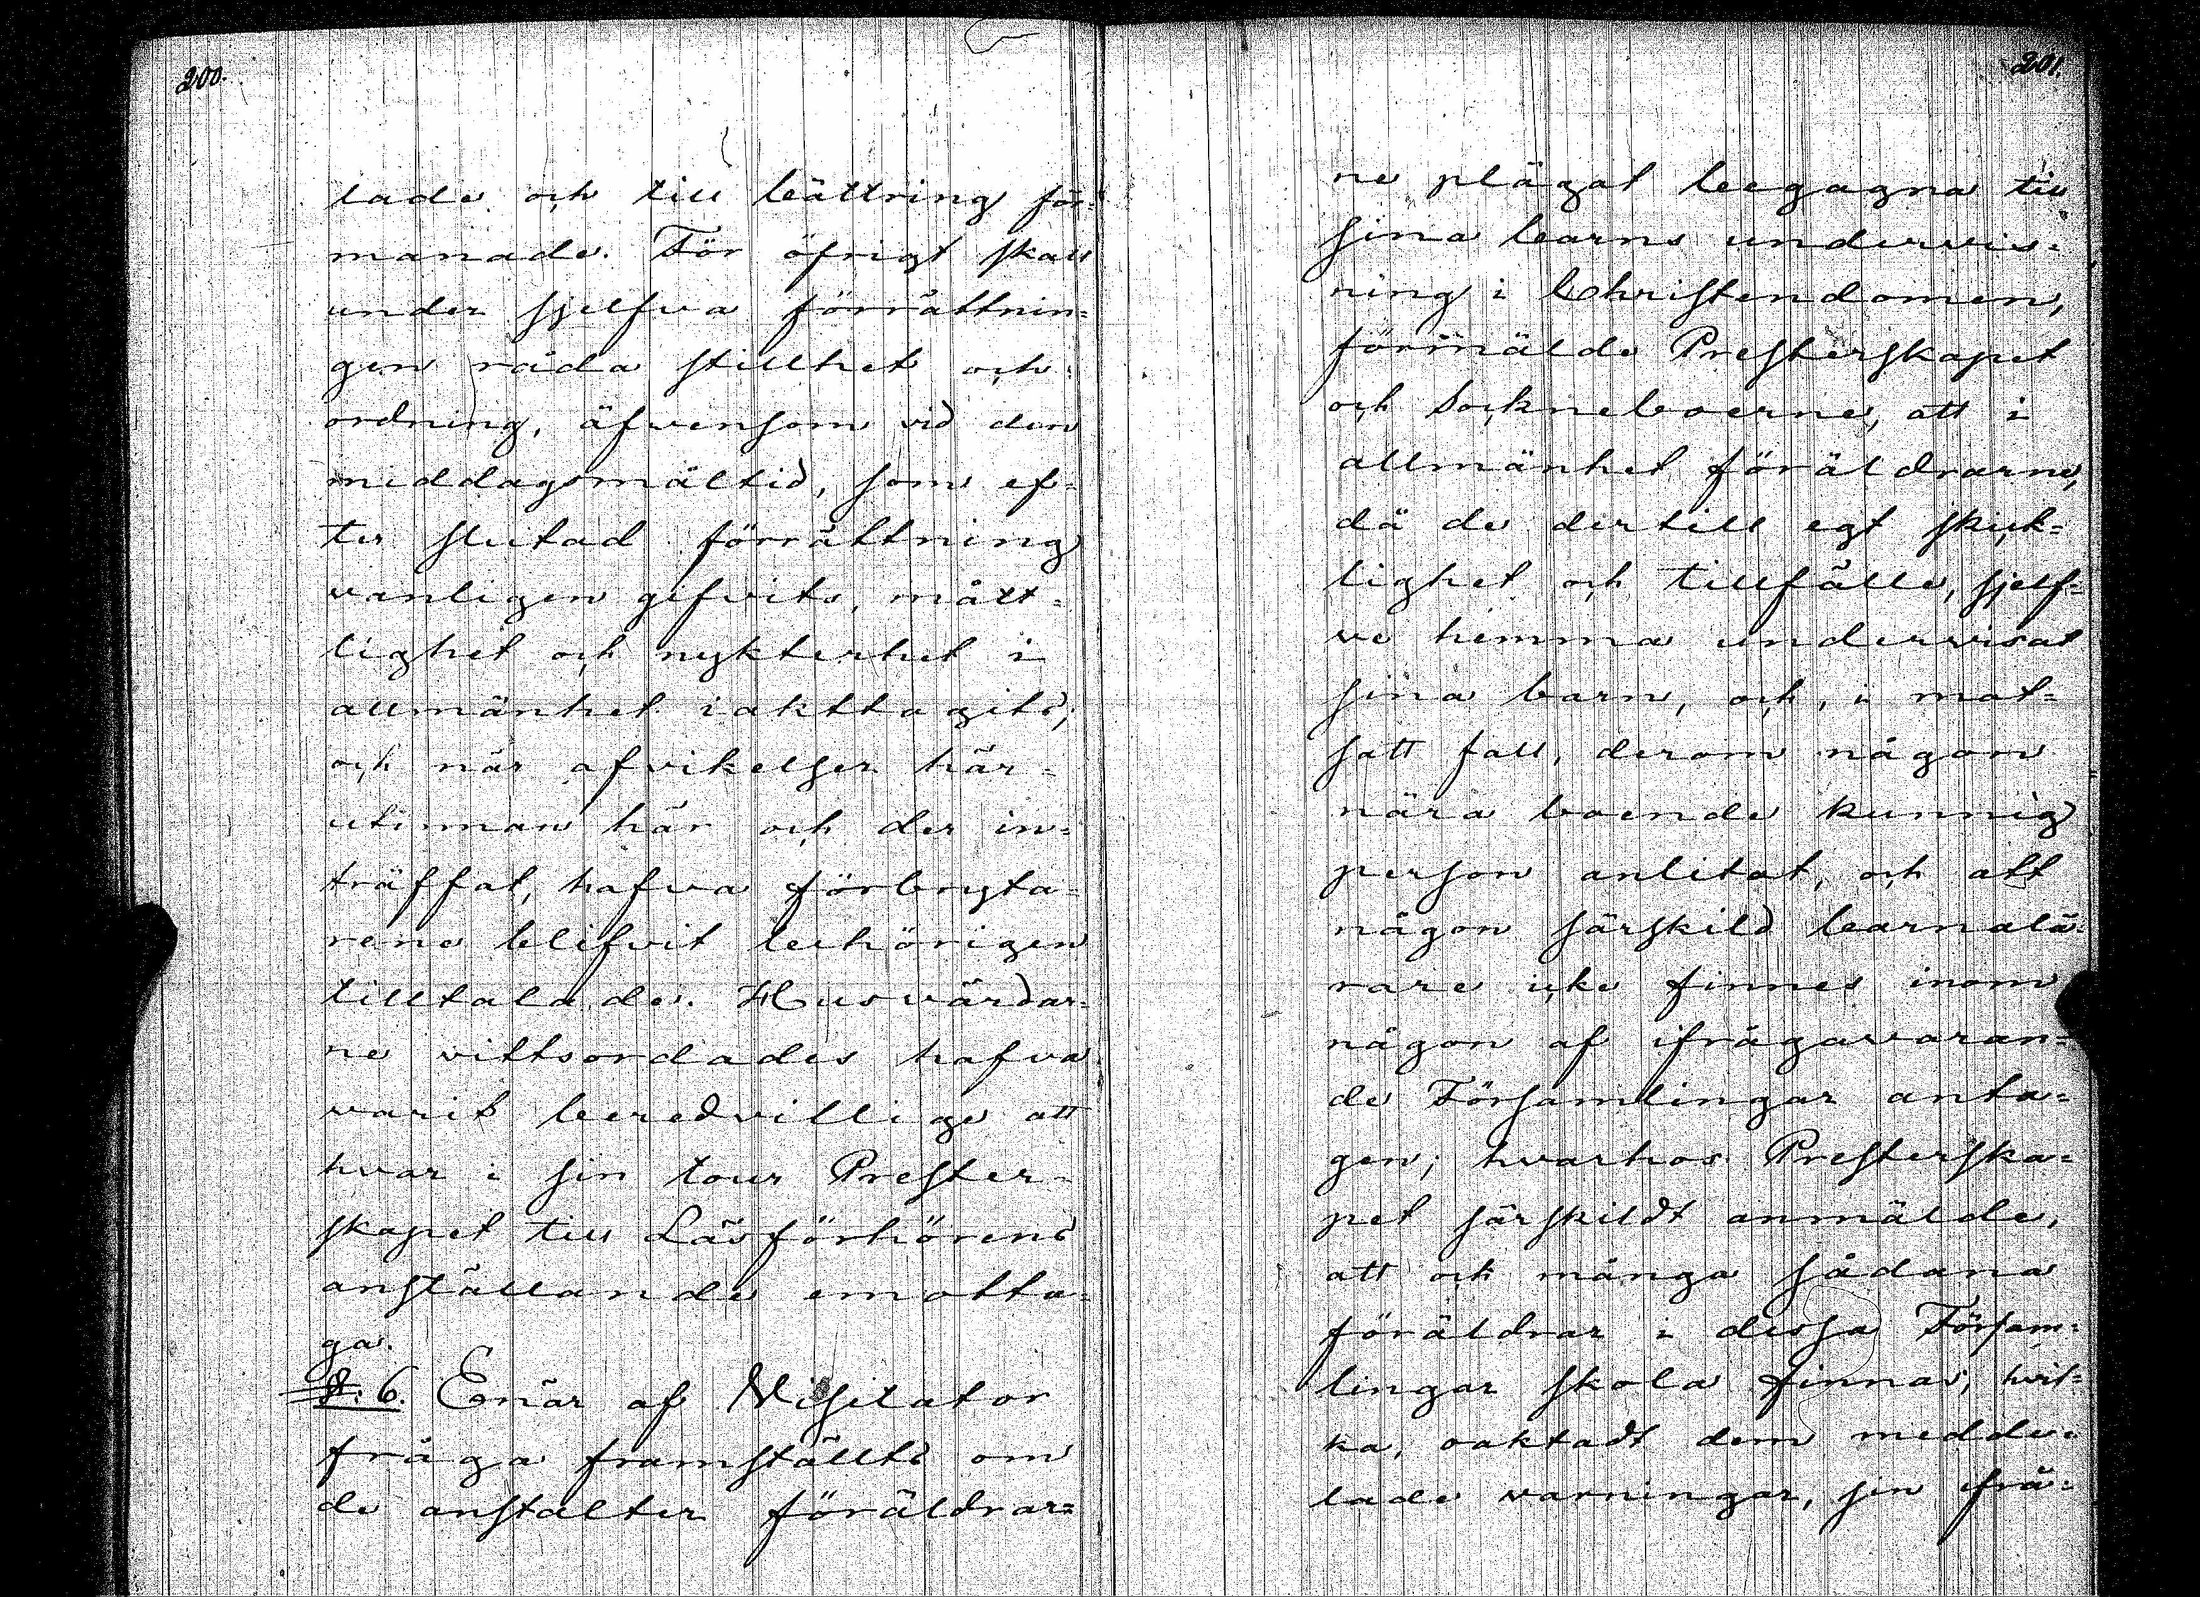 200.
lade och till bättring för-
manade. För öfrigt skall
under sjelfva förrättnin-
gen råda stillhet och
ordning, äfvensom vid den
middagsmåltid, som ef-
ter slutad förrättning
vanligen gifvits, mått-
lighet och nykterhet i
allmänhet iakttagits;
och när afvikelser här-
utinnan här och der in-
träffat, hafva förbryta-
rene blifvit behörigen
tilltalade. Husvärdar-
ne vittsordades hafva
varit beredvillige att
hvar i sin tour Prester-
skapet till Läsförhörens
anställande emotta-
ga.
§: 6. Enär af Visitator
fråga framställts om
de anstalter föräldrar-
201.
ne plägat begagna till
sina barns undervis-
ning i Christendomen,
förmälde Presterskapet
och Sockneboerne, att i
allmänhet föräldrarne,
då de dertill egt skick-
lighet och tillfälle, sjelf-
ve hemma undervisat
sina barn, och, i mot-
satt fall, derom någon
nära boende kunnig
person anlitat, och att
någon särskild barnalä-
rare icke finnes inom
någon af ifrågavaran-
de Församlingar anta-
gen; hvarhos Presterska-
pet särskildt anmälde,
att och många sådana
föräldrar i dessa Försam-
lingar skola finnas, hvil-
ka, oaktadt dem medde-
lade varningar, sin frå-